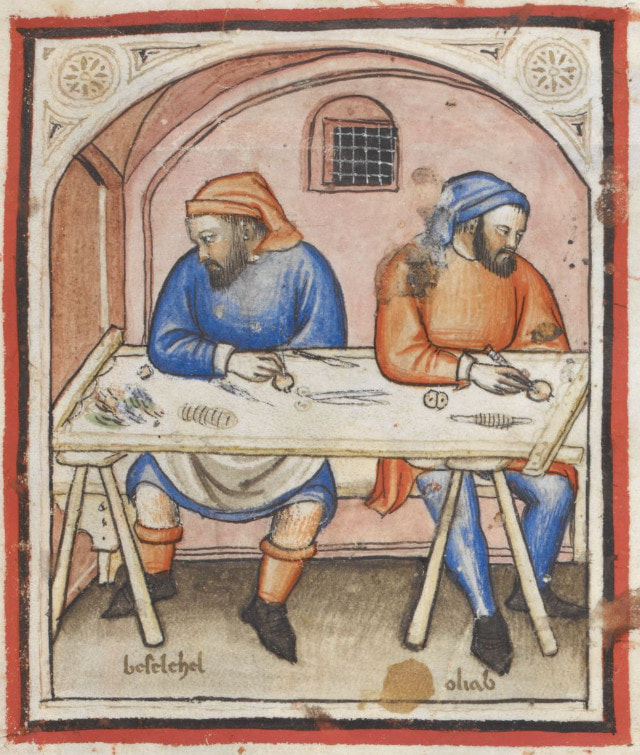 beselehel
oliab